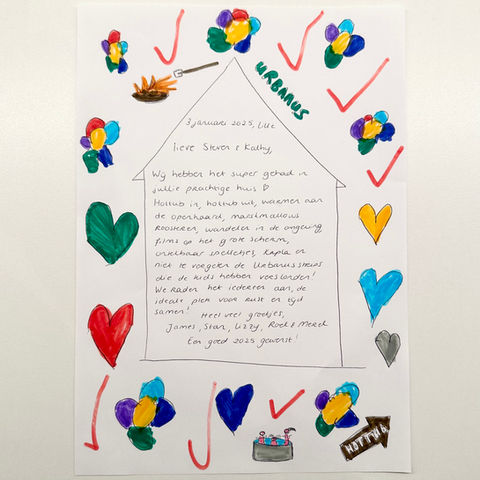 URBANUS
3 januari 2025, Lille
Lieve Steven & Kathy,
Wij hebben het super gehad in
jullie prachtige huis ♡
Hottub in, hottub uit, warmen aan
de openhaard, marshmallows
roosteren, wandelen in de omgeving
films op het grote scherm,
ontelbaar spelletjes, Kapla en
niet te vergeten de Urbanus strips
die de kids hebben verslonden!
We raden het iedereen aan, de
ideale plek voor rust en tijd
samen!
Heel veel groetjes,
James, Stan, Lizzy, Roel & Merel
Een goed 2025 gewenst!
HOTTUB